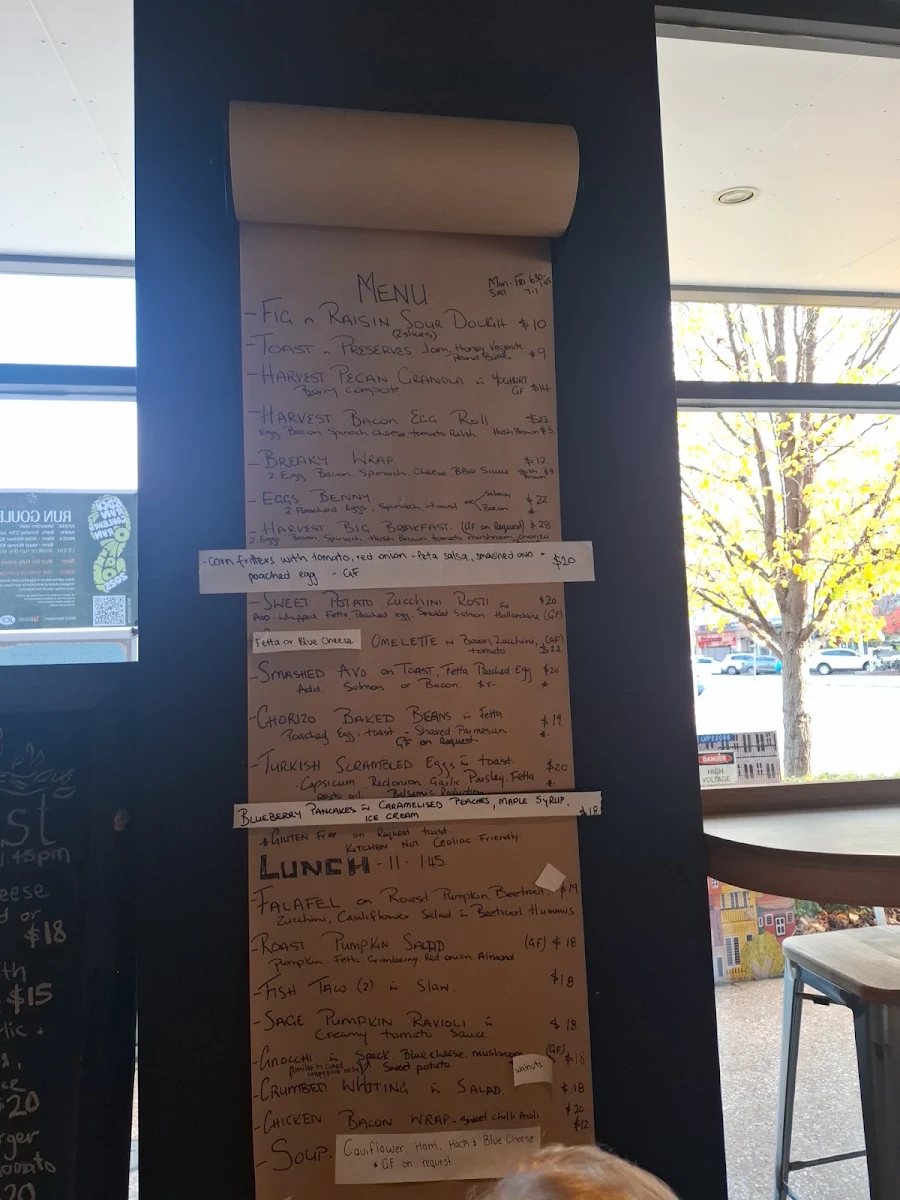 MENU
Mon - Fri 6:30
SAT 7-1
- FIG n RAISIN SOUR DOUGH $10
(2 slices)
- TOAST n PRESERVES Jam, Honey Vegemite $9
Peanut Butter
- HARVEST PECAN GRANOLA w YOGHURT
Berry Compote GF $14
- HARVEST BACON EGG ROLL $12
Egg Bacon Spinach Cheese tomato Relish Hash Brown $3
- BREAKY WRAP $12
2 Egg Bacon Spinach Cheese BBQ Sauce Hash Brown $3
- EGGS BENNY $22
2 Poached Eggs, Spinach, toast Salmon or Bacon
- HARVEST BIG BREAKFAST (GF on Request) $28
2 Egg, Bacon, Spinach, Hash Brown, tomato mushroom chorizo
- Corn fritters with tomato, red onion + feta salsa, smashed avo + $20
poached egg - GF
- SWEET POTATO ZUCCHINI ROSTI w $20
Avo Whipped Fetta Poached egg, Smoked Salmon Hollandaise (GF)
FETTA OR BLUE CHEESE OMELETTE w Bacon Zucchini, (GF)
tomato $22
- SMASHED AVO on TOAST, Fetta Poached Egg $20
Add Salmon or Bacon $5-
- CHORIZO BAKED BEANS w Fetta $19
Poached Egg toast - Shaved Parmesan
GF on Request
- TURKISH SCRAMBLED Eggs w toast $20
Capsicum Redonion Garlic Parsley, Fetta
Pesto oil Balsamic Reduction
BLUEBERRY PANCAKES w CARAMELISED PEACHES, MAPLE SYRUP, $18
ICE CREAM
* GLUTEN Free on Request toast
KITCHEN NOT Celiac Friendly
LUNCH - 11 - 1:45
- FALAFEL on Roast Pumpkin, Beetroot $19
Zucchini, Cauliflower Salad w Beetroot Hummus
- ROAST PUMPKIN SALAD (GF) $18
Pumpkin Fetta Cranberry Red onion Almond
- FISH TACO (2) w Slaw $18
- SAGE PUMPKIN RAVIOLI w $18
Creamy tomato Sauce
- GNOCCHI w Speck Blue cheese mushroom (GF) $18
Sweet potato
walnuts
- CRUMBED WHITING w SALAD $18
$20
- CHICKEN BACON WRAP - Sweet chilli Aioli $12
- SOUP Cauliflower Ham, Hock & Blue Cheese
* GF on request
st
1:45pm
eese
d or
$18
$15
$20
RUN GOUL
LVP22086
DANGER
HIGH
VOLTAGE